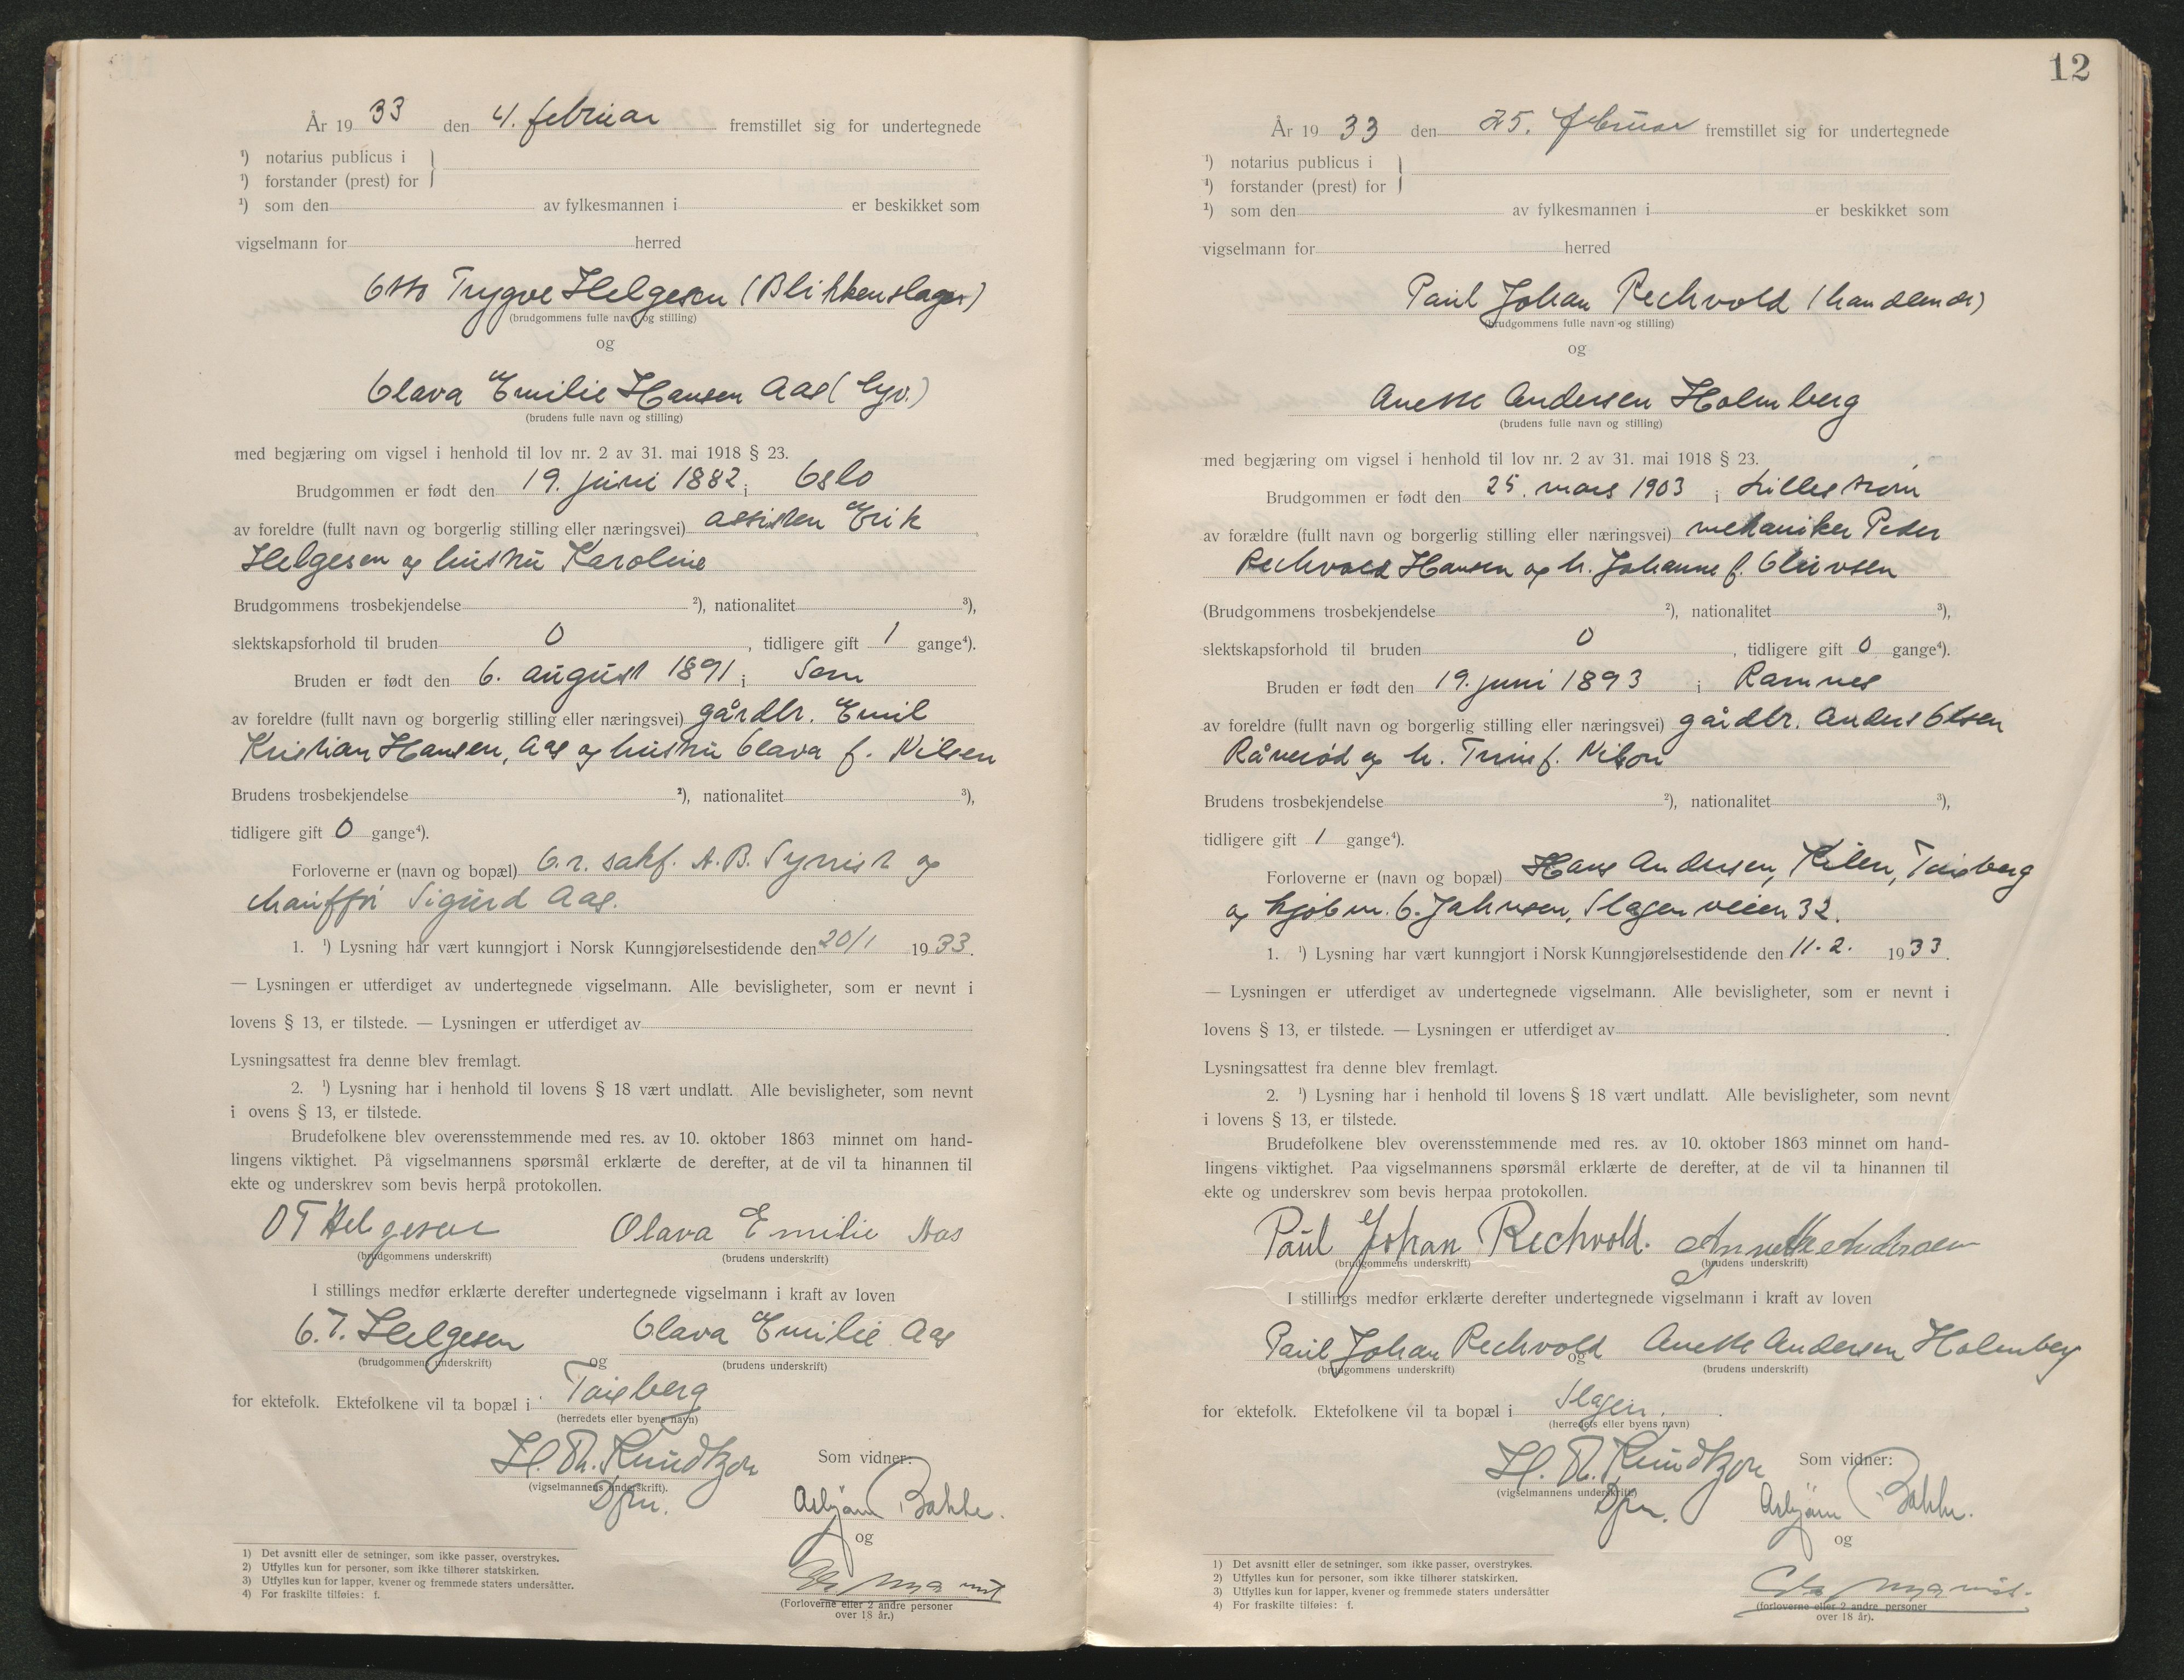 År 19 33 den 4. februar fremstillet sig for undertegnede
¹) notarius publicus i
¹) forstander (prest) for
¹) som den av fylkesmannen i er beskikket som
vigselmann for herred
Otto Trygve Helgesen (Blikkenslager)
(brudgommens fulle navn og stilling)
og
Olava Emilie Hansen Aas (syv.)
(brudens fulle navn og stilling)
med begjæring om vigsel i henhold til lov nr. 2 av 31. mai 1918 § 23.
Brudgommen er født den 19. juni 1882 i Oslo
av foreldre (fullt navn og borgerlig stilling eller næringsvei) assisten Erik
Helgesen og hustru Karoline
Brudgommens trosbekjendelse ²), nationalitet ³),
slektskapsforhold til bruden 0, tidligere gift 1 gange⁴).
Bruden er født den 6. august 1891 i Sem
av foreldre (fullt navn og borgerlig stilling eller næringsvei) gårdbr. Emil
Kristian Hansen, Aas og hustru Olava f. Nilsen
Brudens trosbekjendelse ²), nationalitet ³),
tidligere gift 0 gange⁴).
Forloverne er (navn og bopæl) O.r. sakf. A. B. og
chauffør Sigurd Aas.
1. ¹) Lysning har vært kunngjort i Norsk Kunngjørelsestidende den 20/1 1933.
— Lysningen er utferdiget av undertegnede vigselmann. Alle bevisligheter, som er nevnt i
lovens § 13, er tilstede. — Lysningen er utferdiget av
Lysningsattest fra denne blev fremlagt.
2. ¹) Lysning har i henhold til lovens § 18 vært undlatt. Alle bevisligheter, som nevnt
i ovens § 13, er tilstede.
Brudefolkene blev overensstemmende med res. av 10. oktober 1863 minnet om hand-
lingens viktighet. På vigselmannens spørsmål erklærte de derefter, at de vil ta hinannen til
ekte og underskrev som bevis herpå protokollen.
O T Helgesen Olava Emilie Aas
(brudgommens underskrift) (brudens underskrift)
I stillings medfør erklærte derefter undertegnede vigselmann i kraft av loven
O. T. Helgesen Olava Emilie Aas
(brudgommens underskrift) og (brudens underskrift)
for ektefolk. Ektefolkene vil ta bopæl i Tønsberg
(herredets eller byens navn)
H. Th. Knudtzon Som vidner:
(vigselmannens underskrift).
Dfm. Asbjørn Bakke.
og
(Forloverne eller 2 andre personer
over 18 år.)
1) Det avsnitt eller de setninger, som ikke passer, overstrykes.
2) Utfylles kun for personer, som ikke tilhører statskirken.
3) Utfylles kun for lapper, kvener og fremmede staters undersåtter.
4) For fraskilte tilføies: f.
12
År 19 33 den 25. februar fremstillet sig for undertegnede
¹) notarius publicus i
¹) forstander (prest) for
¹) som den av fylkesmannen i er beskikket som
vigselmann for herred
Paul Johan Rechvold (handlende)
(brudgommens fulle navn og stilling)
og
Anette Andersen Holmberg
(brudens fulle navn og stilling)
med begjæring om vigsel i henhold til lov nr. 2 av 31. mai 1918 § 23.
Brudgommen er født den 25. mars 1903 i Lillestrøm
av forældre (fullt navn og borgerlig stilling eller næringsvei) mekaniker Peder
Rechvold Hansen og h. Johanne f. Olivsen
(Brudgommens trosbekjendelse ²), nationalitet ³),
slektskapsforhold til bruden 0, tidligere gift 0 gange⁴).
Bruden er født den 19. juni 1893 i Ramnes
av foreldre (fullt navn og borgerlig stilling eller næringsvei) gårdbr. Anders Olsen
Rånerød og h. Trine f. Nilson
Brudens trosbekjendelse ²), nationalitet ³),
tidligere gift 1 gange⁴).
Forloverne er (navn og bopæl) Hans Andersen, Kilen, Tønsberg
og kjøbm. O. Jahnsen, Slagenveien 32.
1. ¹) Lysning har vært kunngjort i Norsk Kunngjørelsestidende den 11.2. 1933.
— Lysningen er utferdiget av undertegnede vigselmann. Alle bevisligheter, som er nevnt i
lovens § 13, er tilstede. — Lysningen er utferdiget av
Lysningsattest fra denne blev fremlagt.
2. ¹) Lysning har i henhold til lovens § 18 vært undlatt. Alle bevisligheter, som nevnt
i lovens § 13, er tilstede.
Brudefolkene blev overensstemmende med res. av 10. oktober 1863 minnet om hand-
lingens viktighet. Paa vigselmannens spørsmål erklærte de derefter, at de vil ta hinannen til
ekte og underskrev som bevis herpaa protokollen.
Paul Johan Rechvold. Annette Andersen
(brudgommens underskrift) (brudens underskrift)
I stillings medfør erklærte derefter undertegnede vigselmann i kraft av loven
Paul Johan Rechvold og Anette Andersen Holmberg
(brudgommens underskrift) (brudens underskrift)
for ektefolk. Ektefolkene vil ta bopæl i Slagen.
(herredets eller byens navn)
H. Th. Knudtzon Som vidner:
(vigselmannens underskrift)
Dfm. Asbjørn Bakke.
og
(forloverne eller 2 andre personer
over 18 år).
1) Det avsnitt eller de setninger, som ikke passer, overstrykes.
2) Utfylles kun for personer, som ikke tilhører statskirken.
3) Utfylles kun for lapper, kvener og fremmede staters undersåtter
4) For fraskilte tilføies: f.